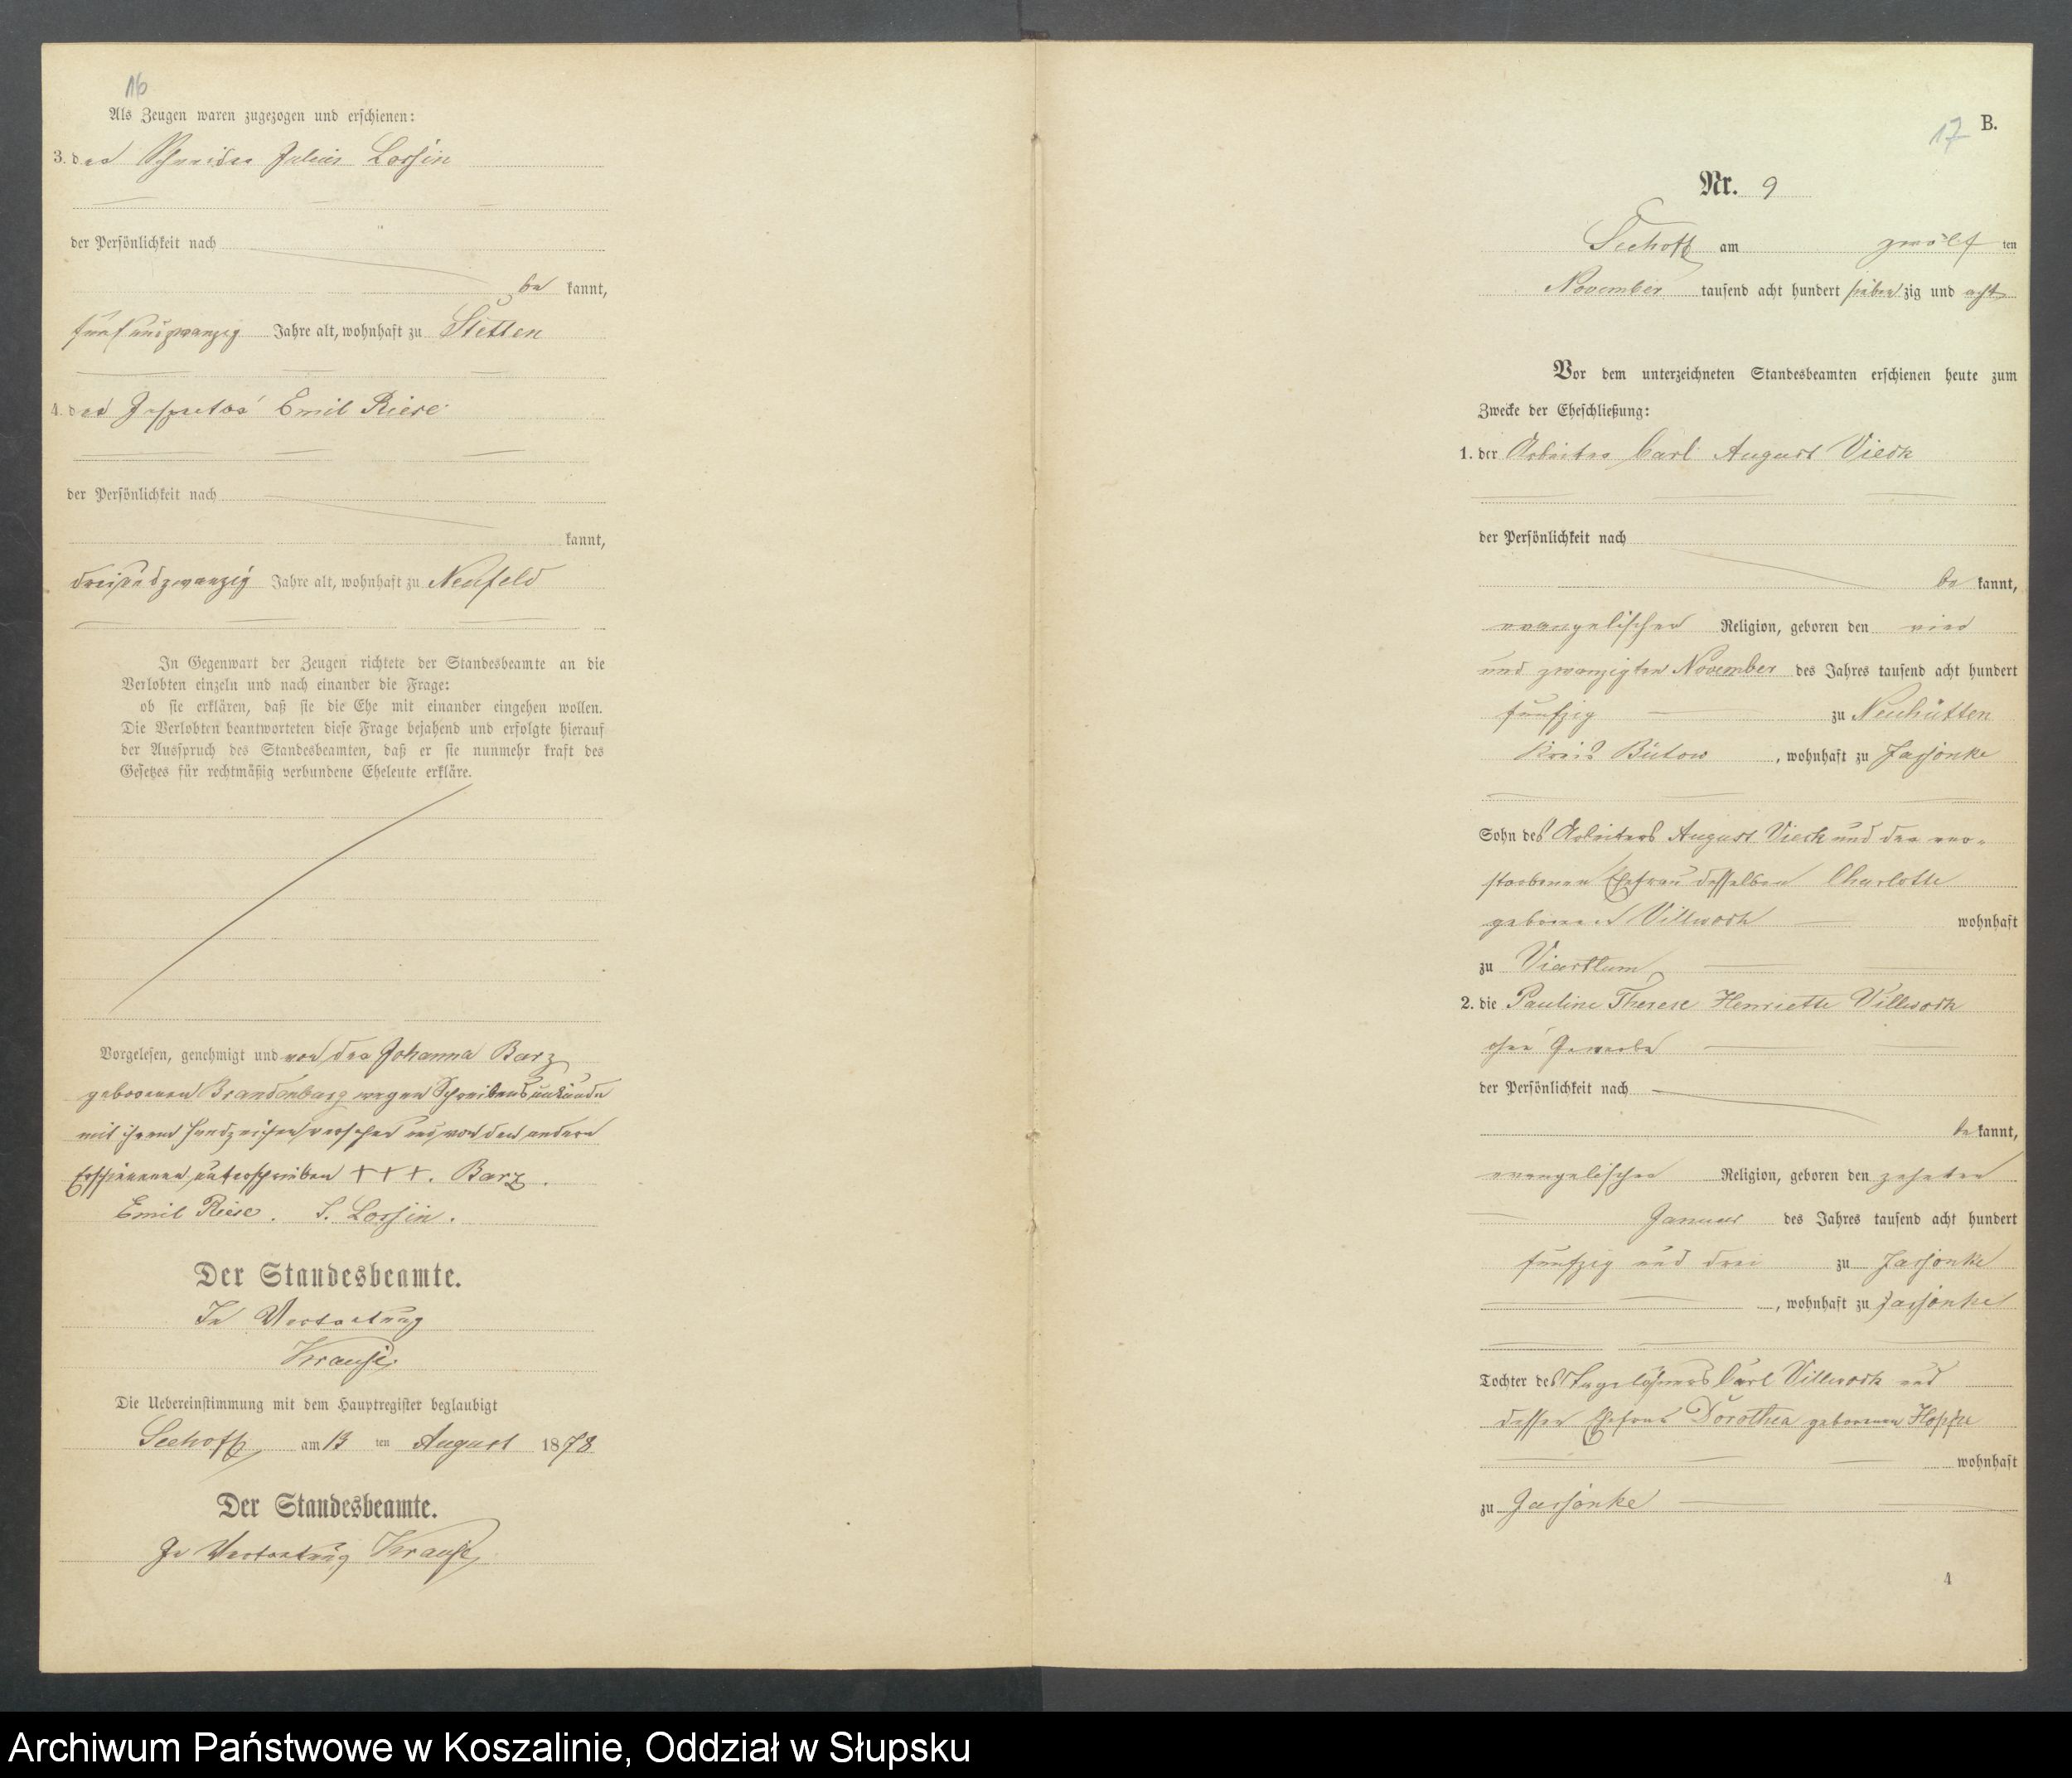 16
Als Zeugen waren zugezogen und erschienen:
3. der Schneider Julius Lossin
der Persönlichkeit nach
be kannt,
fünfundzwanzig Jahre alt, wohnhaft zu Stetten
4. der Inspector Emil Riese
der Persönlichkeit nach
kannt,
dreiundzwanzig Jahre alt, wohnhaft zu Neufeld
In Gegenwart der Zeugen richtete der Standesbeamte an die
Verlobten einzeln und nach einander die Frage:
ob sie erklären, daß sie die Ehe mit einander eingehen wollen.
Die Verlobten beantworteten diese Frage bejahend und erfolgte hierauf
der Ausspruch des Standesbeamten, daß er sie nunmehr kraft des
Gesetzes für rechtmäßig verbundene Eheleute erkläre.
Vorgelesen, genehmigt und von der Johanna Barz
geborenen Brandenburg wegen Schreibensunkunde
mit ihrem Handzeichen versehen und von den andern
Erschienenen unterschrieben +++. Barz.
Emil Riese. J. Lossin.
Der Standesbeamte.
In Vertretung
Krause.
Die Uebereinstimmung mit dem Hauptregister beglaubigt
Seehoff, am 13 ten August 1878
Der Standesbeamte.
In Vertretung Krause
17 B.
Nr. 9
Seehoff am zwölf ten
November tausend acht hundert sieben zig und acht
Vor dem unterzeichneten Standesbeamten erschienen heute zum
Zwecke der Eheschließung:
1. der Arbeiter Carl August Vieck
der Persönlichkeit nach
be kannt,
evangelischer Religion, geboren den vier
und zwanzigten November des Jahres tausend acht hundert
fünfzig zu Neuhütten
Kreis Bütow, wohnhaft zu Jassonke
Sohn des Arbeiters August Vieck und der ver-
storbenen Ehefrau desselben Charlotte
geborenen Villwock wohnhaft
zu Viartlum
2. die Pauline Therese Henriette Villwock
ohne Gewerbe
der Persönlichkeit nach
be kannt,
evangelischer Religion, geboren den zehnten
Januar des Jahres tausend acht hundert
fünfzig und drei zu Jassonke
, wohnhaft zu Jassonke
Tochter des Tagelöhners Carl Villwock und
dessen Ehefrau Dorothea geborenen Hoppe
wohnhaft
zu Jassonke
4
Archiwum Państwowe w Koszalinie, Oddział w Słupsku